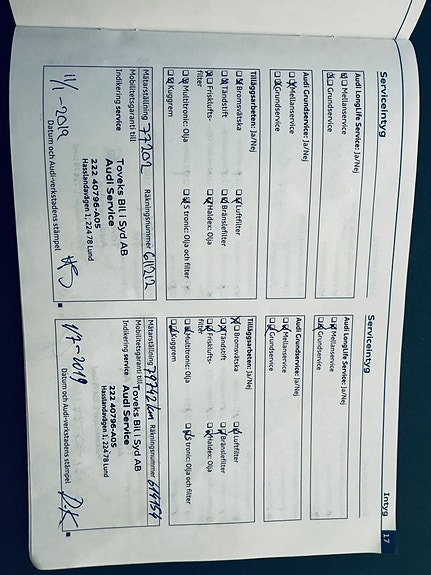 Intyg 17
Serviceintyg
Audi LongLife Service: Ja/Nej
Mellanservice
Grundservice
Audi Grundservice: Ja/Nej
Mellanservice
Grundservice
Tilläggsarbeten: Ja/Nej
Bromsvätska
Luftfilter
Tändstift
Bränslefilter
Frisklufts-
filter
Haldex: Olja
Multitronic: Olja
S tronic: Olja och filter
Kuggrem
Mätarställning 77202 Räkningsnummer 611212
Mobilitetsgaranti till
Indikering service
Toveks Bil i Syd AB
Audi Service
222 40796-A05
Hasslandavägen 1, 224 78 Lund
11/1 - 2019
Datum och Audi-verkstadens stämpel
Serviceintyg
Audi LongLife Service: Ja/Nej
Mellanservice
Grundservice
Audi Grundservice: Ja/Nej
Mellanservice
Grundservice
Tilläggsarbeten: Ja/Nej
Bromsvätska
Luftfilter
Tändstift
Bränslefilter
Frisklufts-
filter
Haldex: Olja
Multitronic: Olja
S tronic: Olja och filter
Kuggrem
Mätarställning 79742 km Räkningsnummer
Mobilitetsgaranti till
Indikering service
Toveks Bil i Syd AB
Audi Service
222 40796-A05
Hasslandavägen 1, 224 78 Lund
1/7 - 2019
Datum och Audi-verkstadens stämpel
D.K